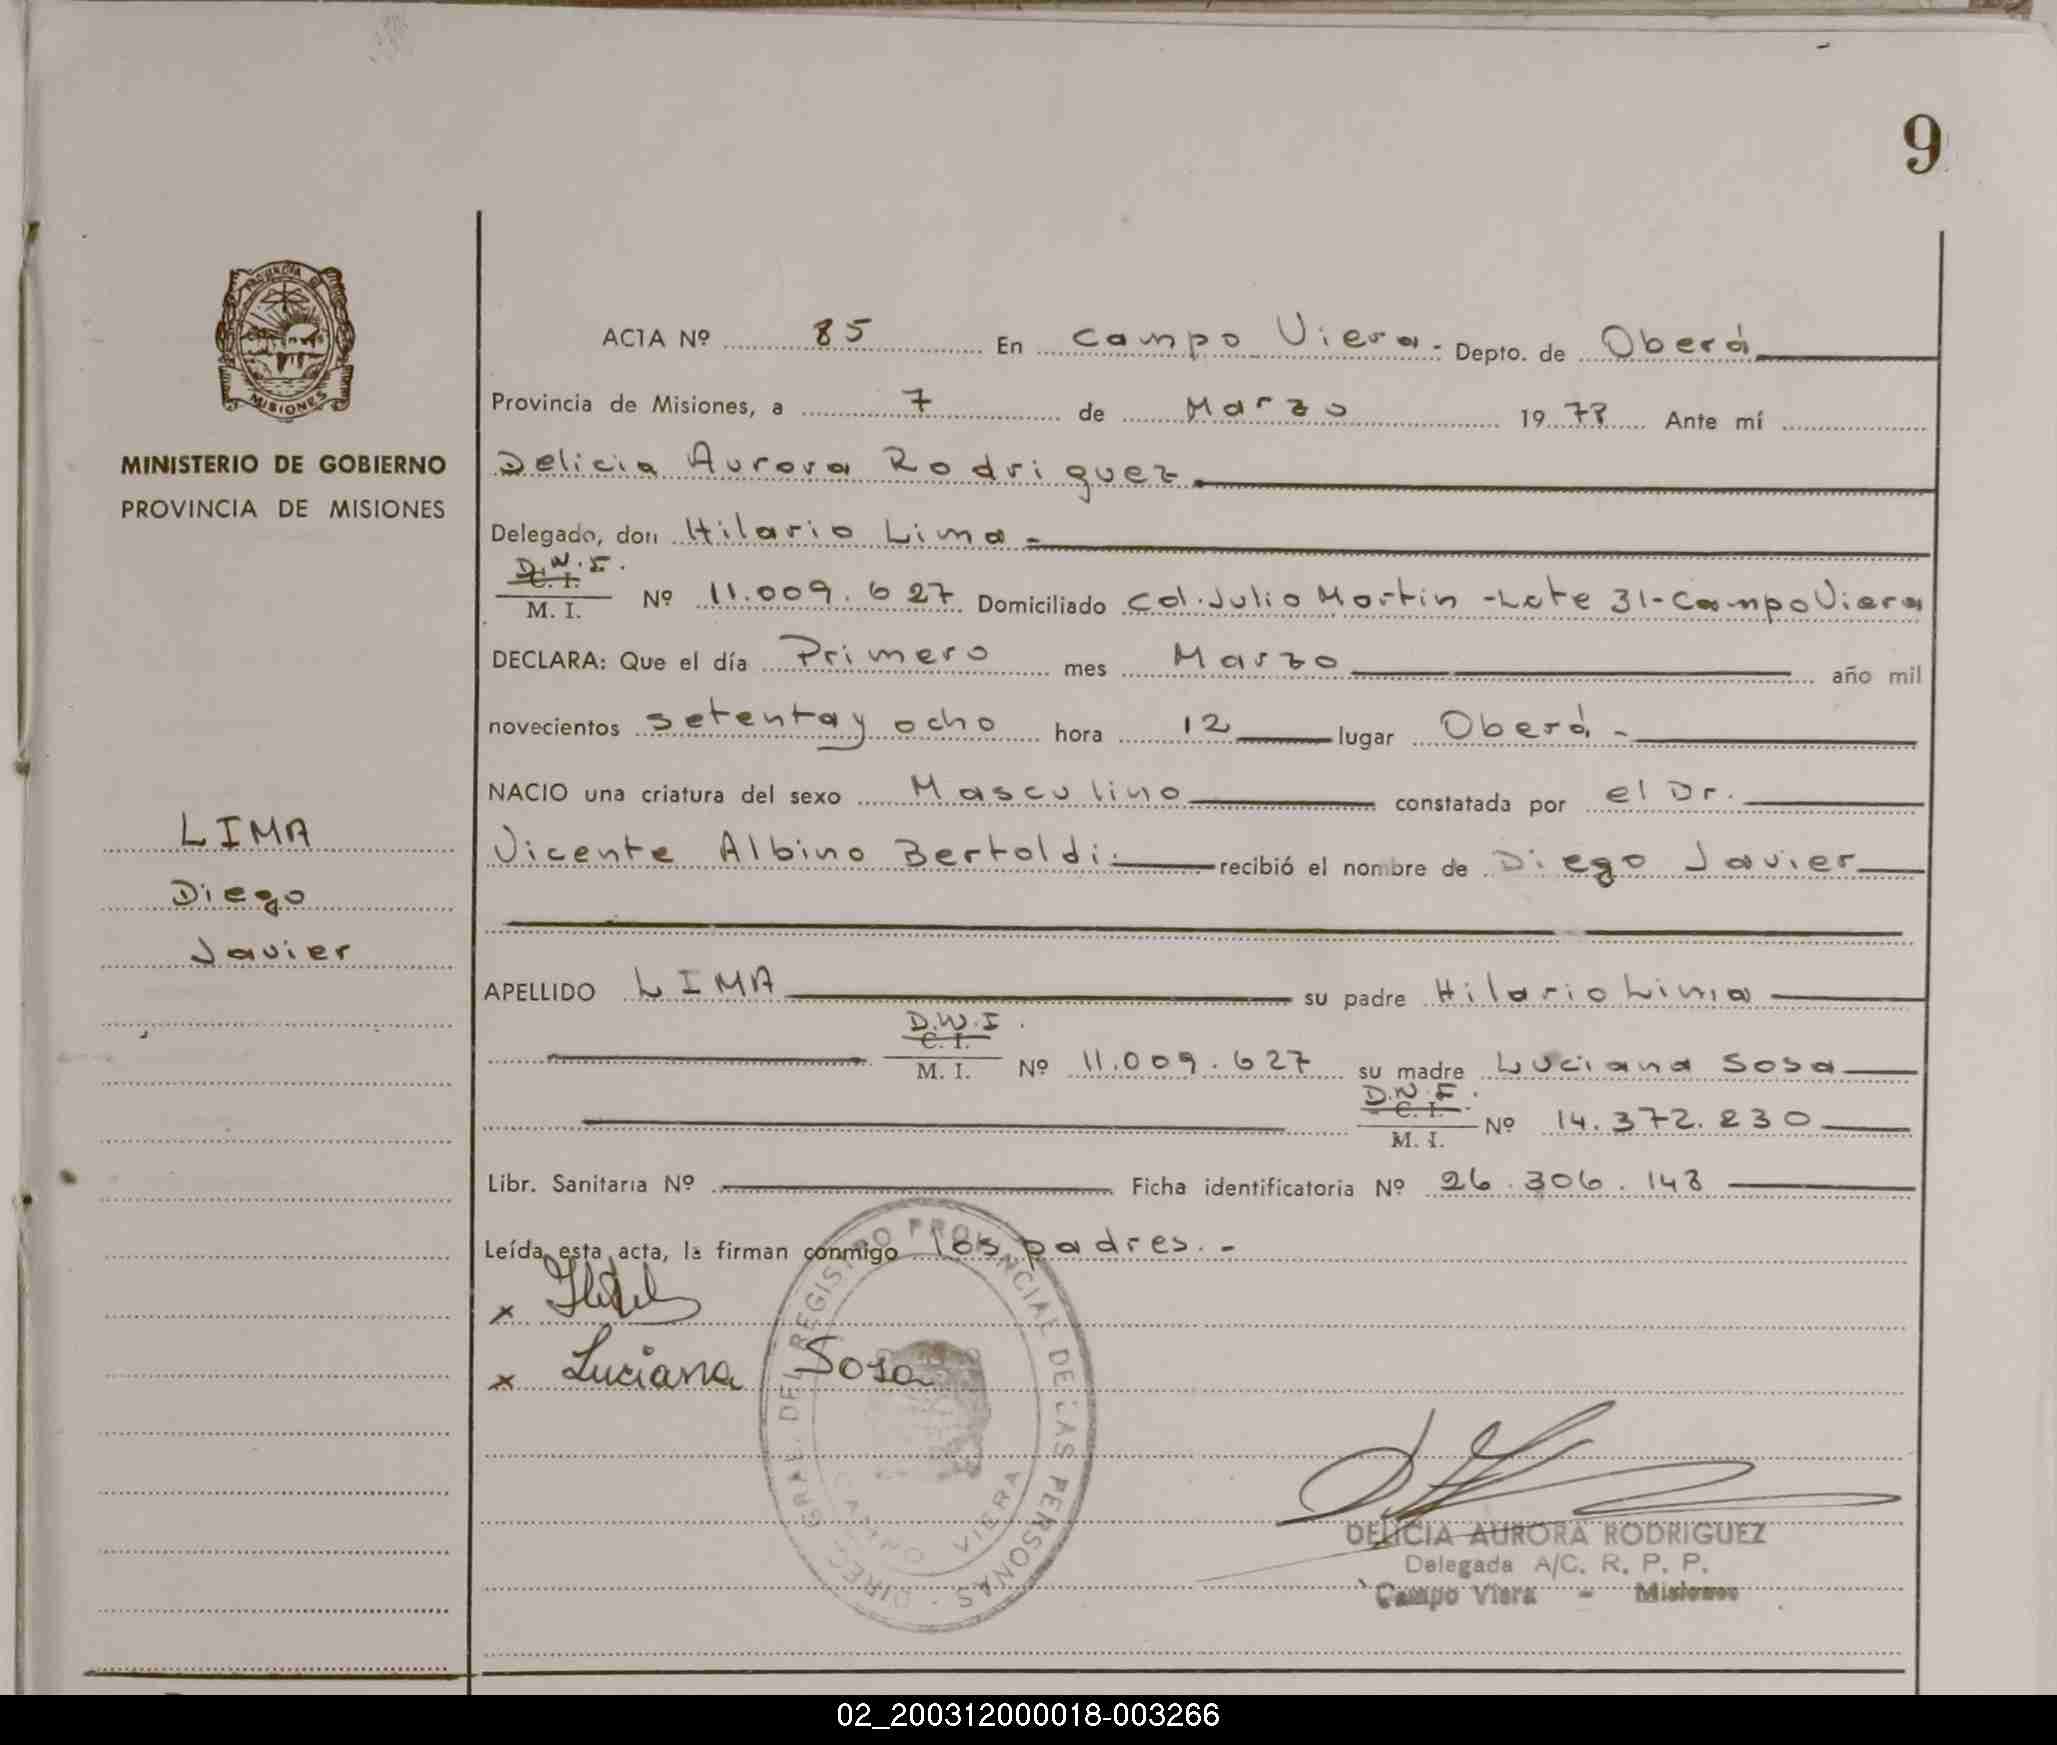 9
PROVINCIA DE
MISIONES
MINISTERIO DE GOBIERNO
PROVINCIA DE MISIONES
LIMA
Diego
Javier
ACTA Nº 85 En Campo Viera - Depto. de Oberá
Provincia de Misiones, a 7 de Marzo 1978 Ante mí
Delicia Aurora Rodriguez
Delegado, don Hilario Lima -
D.N.I.
C. I.
M. I. Nº 11.009.627 Domiciliado Col. Julio Martin - Lote 31 - Campo Viera
DECLARA: Que el día Primero mes Marzo año mil
novecientos setenta y ocho hora 12 lugar Oberá -
NACIO una criatura del sexo Masculino constatada por el Dr.
Vicente Albino Bertoldi recibió el nombre de Diego Javier
APELLIDO LIMA su padre Hilario Lima
D.N.I.
C. I.
M. I. Nº 11.009.627 su madre Luciana Sosa
D.N.I.
C. I.
M. I. Nº 14.372.230
Libr. Sanitaria Nº Ficha identificatoria Nº 26.306.148
Leída esta acta, la firman conmigo los padres. -
x
x Luciana Sosa
DIREC. GRAL. DEL REGISTRO PROVINCIAL DE LAS PERSONAS
CAMPO VIERA
DELICIA AURORA RODRIGUEZ
Delegada A/C. R. P. P.
Campo Viera - Misiones
02_200312000018-003266